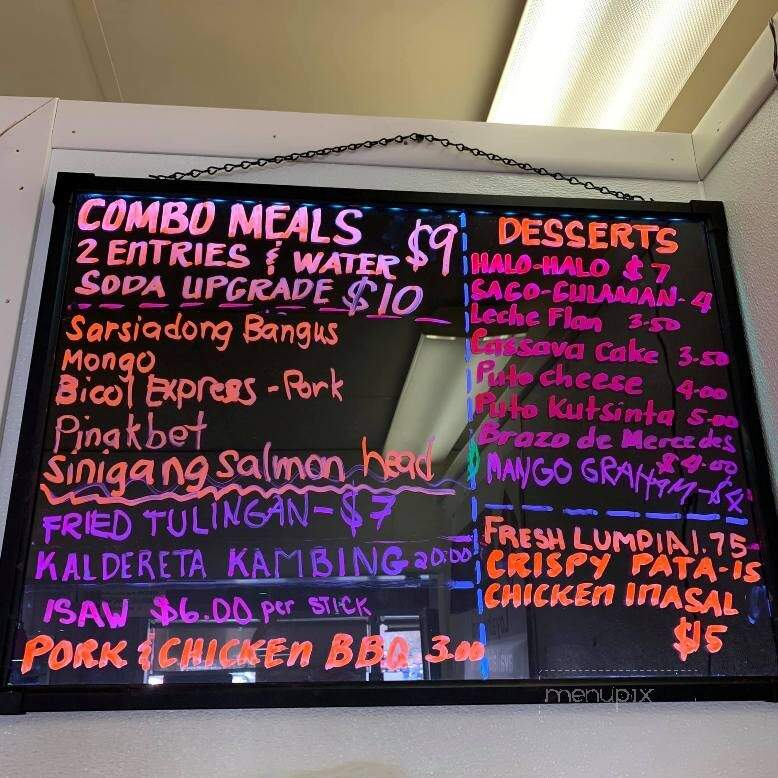 COMBO MEALS
2 ENTRIES & WATER $9
SODA UPGRADE $10
Sarsiadong Bangus
Mongo
Bicol Express - Pork
Pinakbet
Sinigang salmon head
FRIED TULINGAN - $7
KALDERETA KAMBING 20.00
ISAW $6.00 per STICK
PORK & CHICKEN BBQ 3.00
DESSERTS
HALO-HALO $7
SAGO-GULAMAN - 4
Leche Flan 3.50
Cassava Cake 3.50
Puto cheese 4.00
Puto Kutsinta 5.00
Brazo de Mercedes
$4.00
MANGO GRAHAM - $4
FRESH LUMPIA 1.75
CRISPY PATA - 15
CHICKEN INASAL
$15
menupix